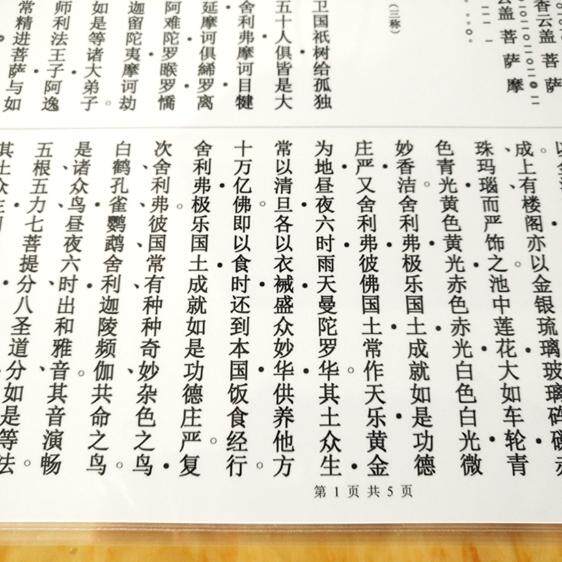 香云盖菩萨
云盖菩萨摩
（三称）
卫国祇树给孤独
五十人俱皆是大
舍利弗摩诃目犍
延摩诃俱絺罗离
阿难陀罗睺罗憍
迦留陀夷摩诃劫
如是等诸大弟子。
师利法王子阿逸
常精进菩萨与如
成上有楼阁亦以金银琉璃玻璃砗磲赤
珠玛瑙而严饰之池中莲花大如车轮青
色青光黄色黄光赤色赤光白色白光微
妙香洁。舍利弗极乐国土成就如是功德
庄严。又舍利弗彼佛国土常作天乐黄金
为地昼夜六时雨天曼陀罗华。其土众生
常以清旦各以衣裓盛众妙华供养他方
十万亿佛即以食时还到本国饭食经行。
舍利弗极乐国土成就如是功德庄严。复
次舍利弗彼国常有种种奇妙杂色之鸟
白鹤、孔雀、鹦鹉、舍利、迦陵频伽、共命之鸟。
是诸众鸟昼夜六时出和雅音。其音演畅
五根五力七菩提分八圣道分如是等法。
其土众生
第 1 页 共 5 页